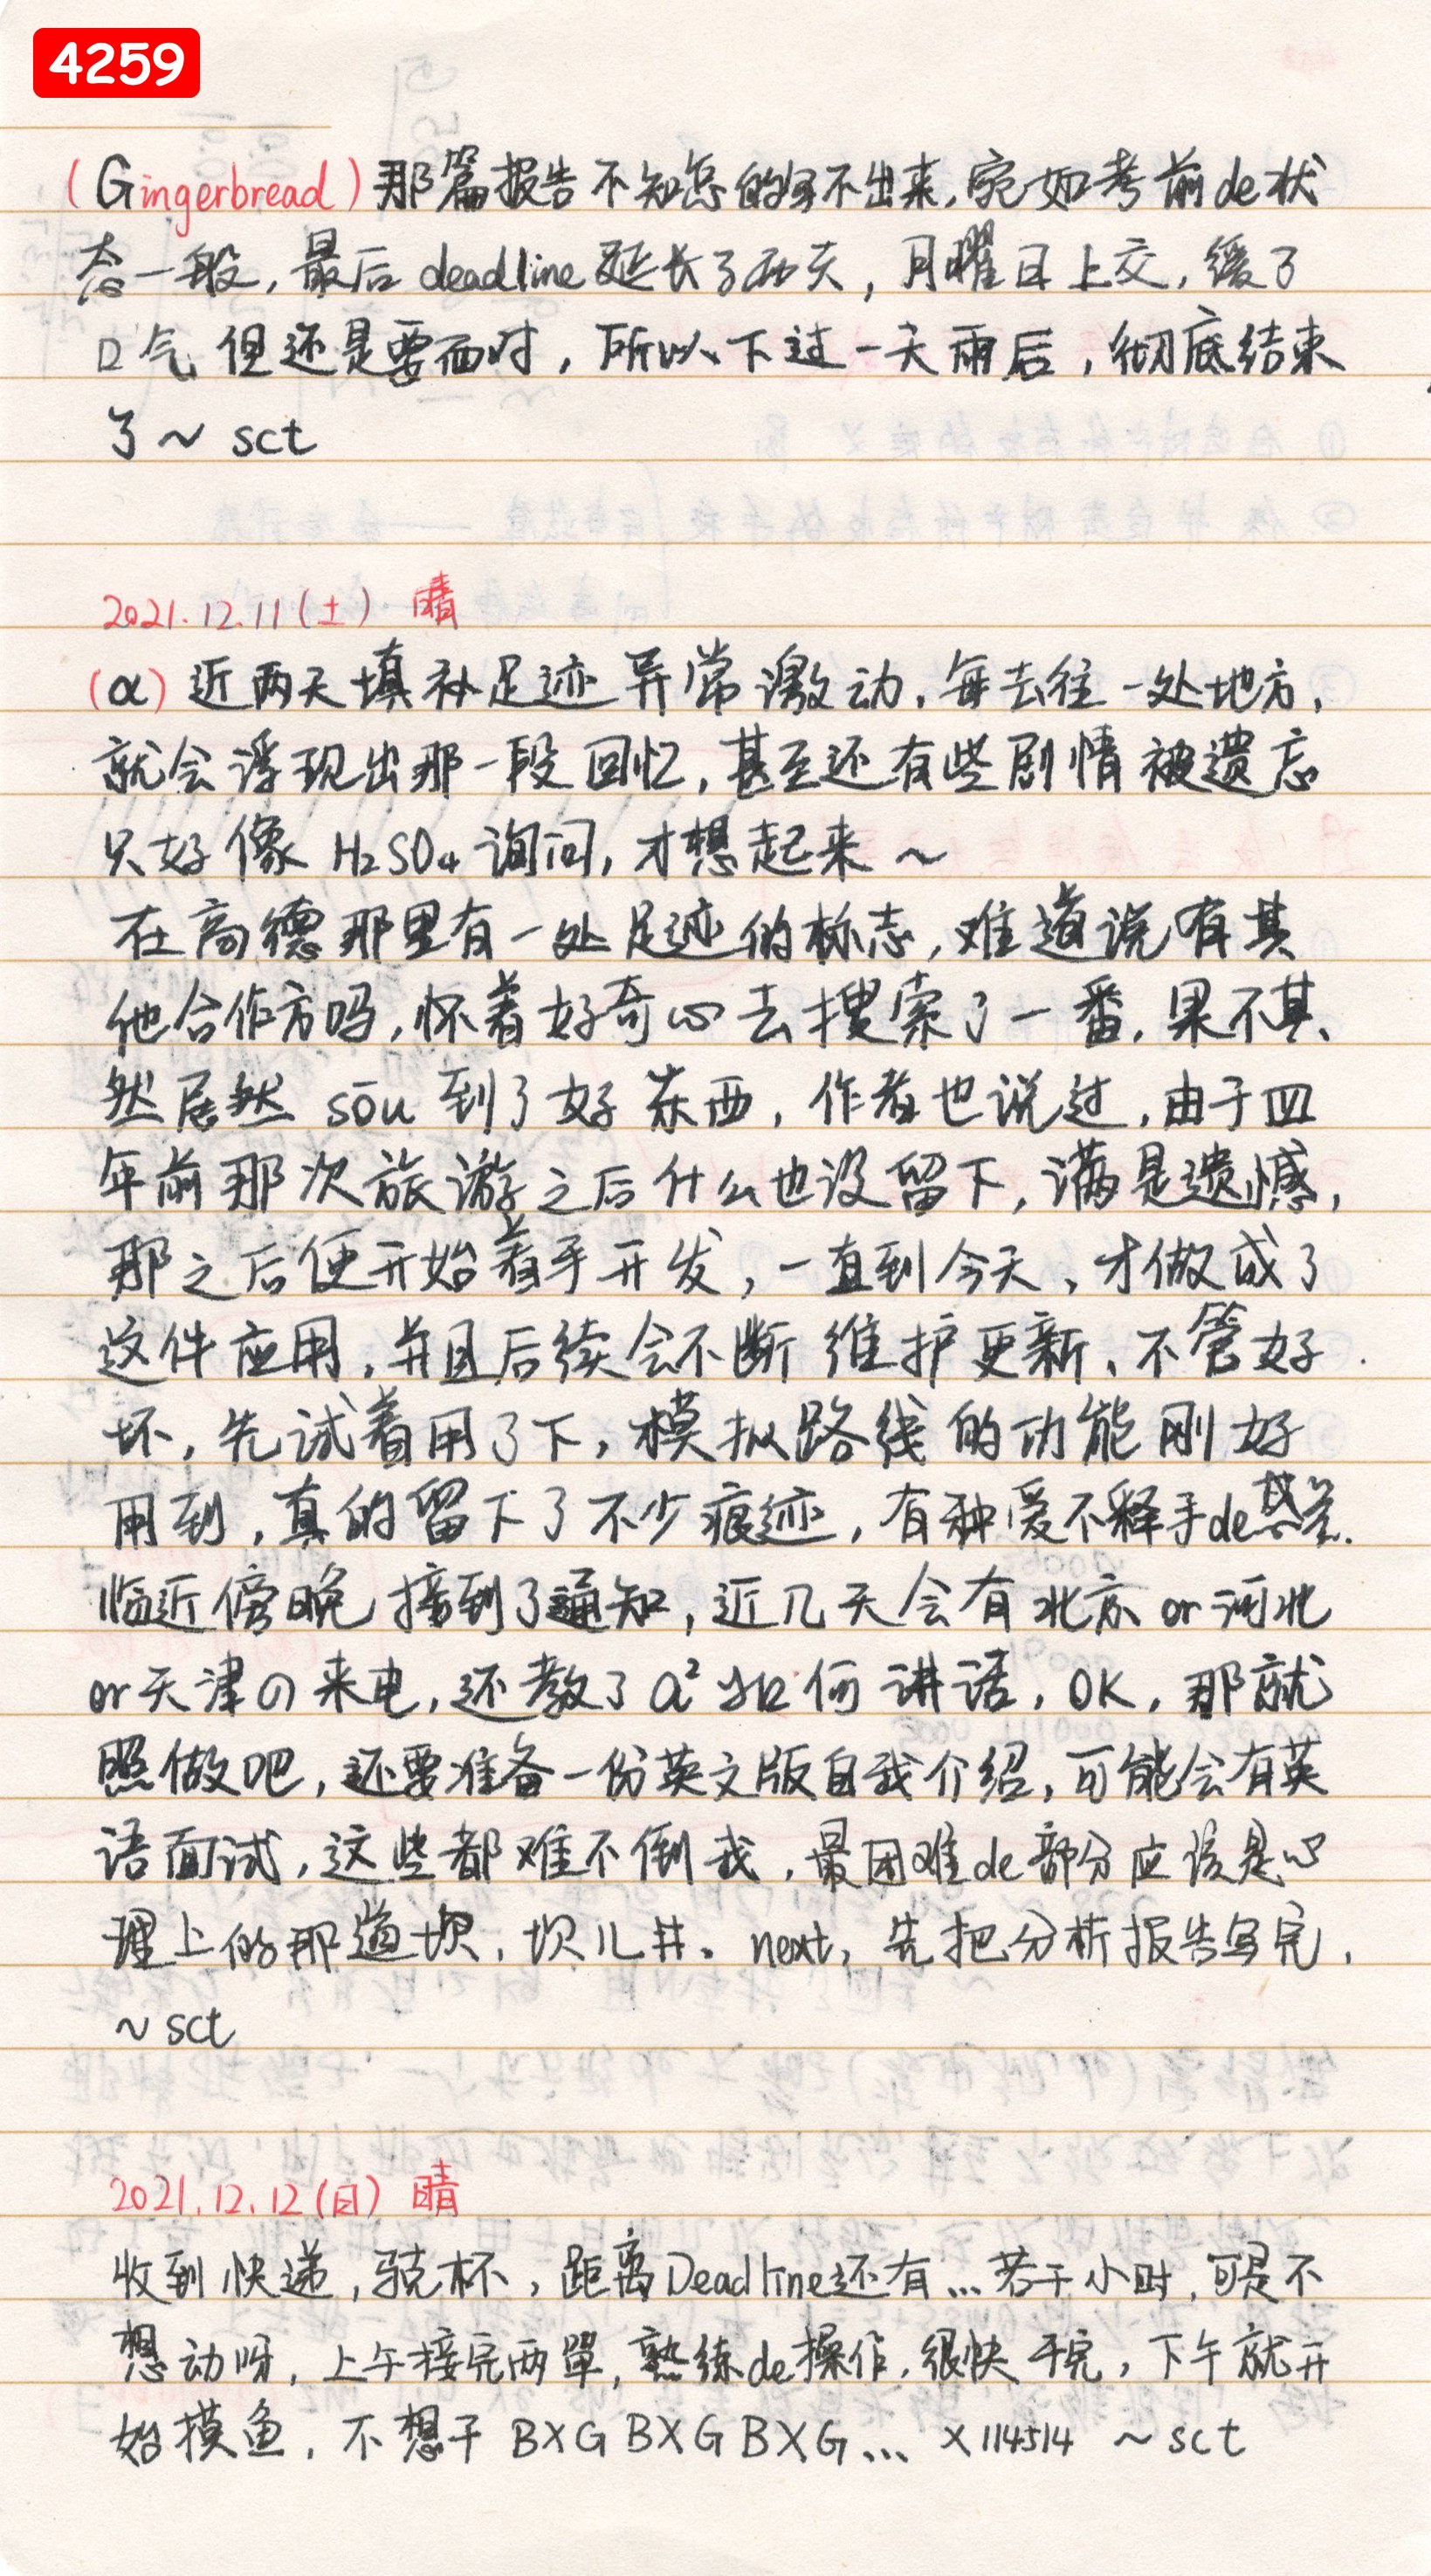 4259
(Gingerbread) 那篇报告不知怎的写不出来,宛如考前de状
态一般,最后deadline延长了两天,月曜日上交,缓了
口气但还是要面对,所以下过一天雨后,彻底结束
了~ sct
2021.12.11(土) 晴
(α) 近两天填补足迹异常激动,每去往一处地方,
就会浮现出那一段回忆,甚至还有些剧情被遗忘
只好像H₂SO₄询问,才想起来~
在高德那里有一处足迹的标志,难道说有其
他合作方吗,怀着好奇心去搜索了一番,果不其、
然居然 sōu 到了好东西,作者也说过,由于四
年前那次旅游之后什么也没留下,满是遗憾,
那之后便开始着手开发,一直到今天,才做成了
这件应用,并且后续会不断维护更新、不管好
坏,先试着用了下,模拟路线的功能刚好
用到,真的留下了不少痕迹,有种爱不释手de感觉.
临近傍晚接到了通知,近几天会有北京or河北
or天津の来电,还教了a²如何讲话,OK,那就
照做吧,还要准备一份英文版自我介绍,可能会有英
语面试,这些都难不倒我,最困难de部分应该是心
理上的那道坎,坝儿井。next,先把分析报告写完,
~ sct
2021.12.12(日) 晴
收到快递,骁杯,距离Deadline还有...若干小时,可是不
想动呀,上午接完两單,熟练de操作,很快干完,下午就开
始摸鱼,不想干 BXG BXG BXG... ×114514 ~sct